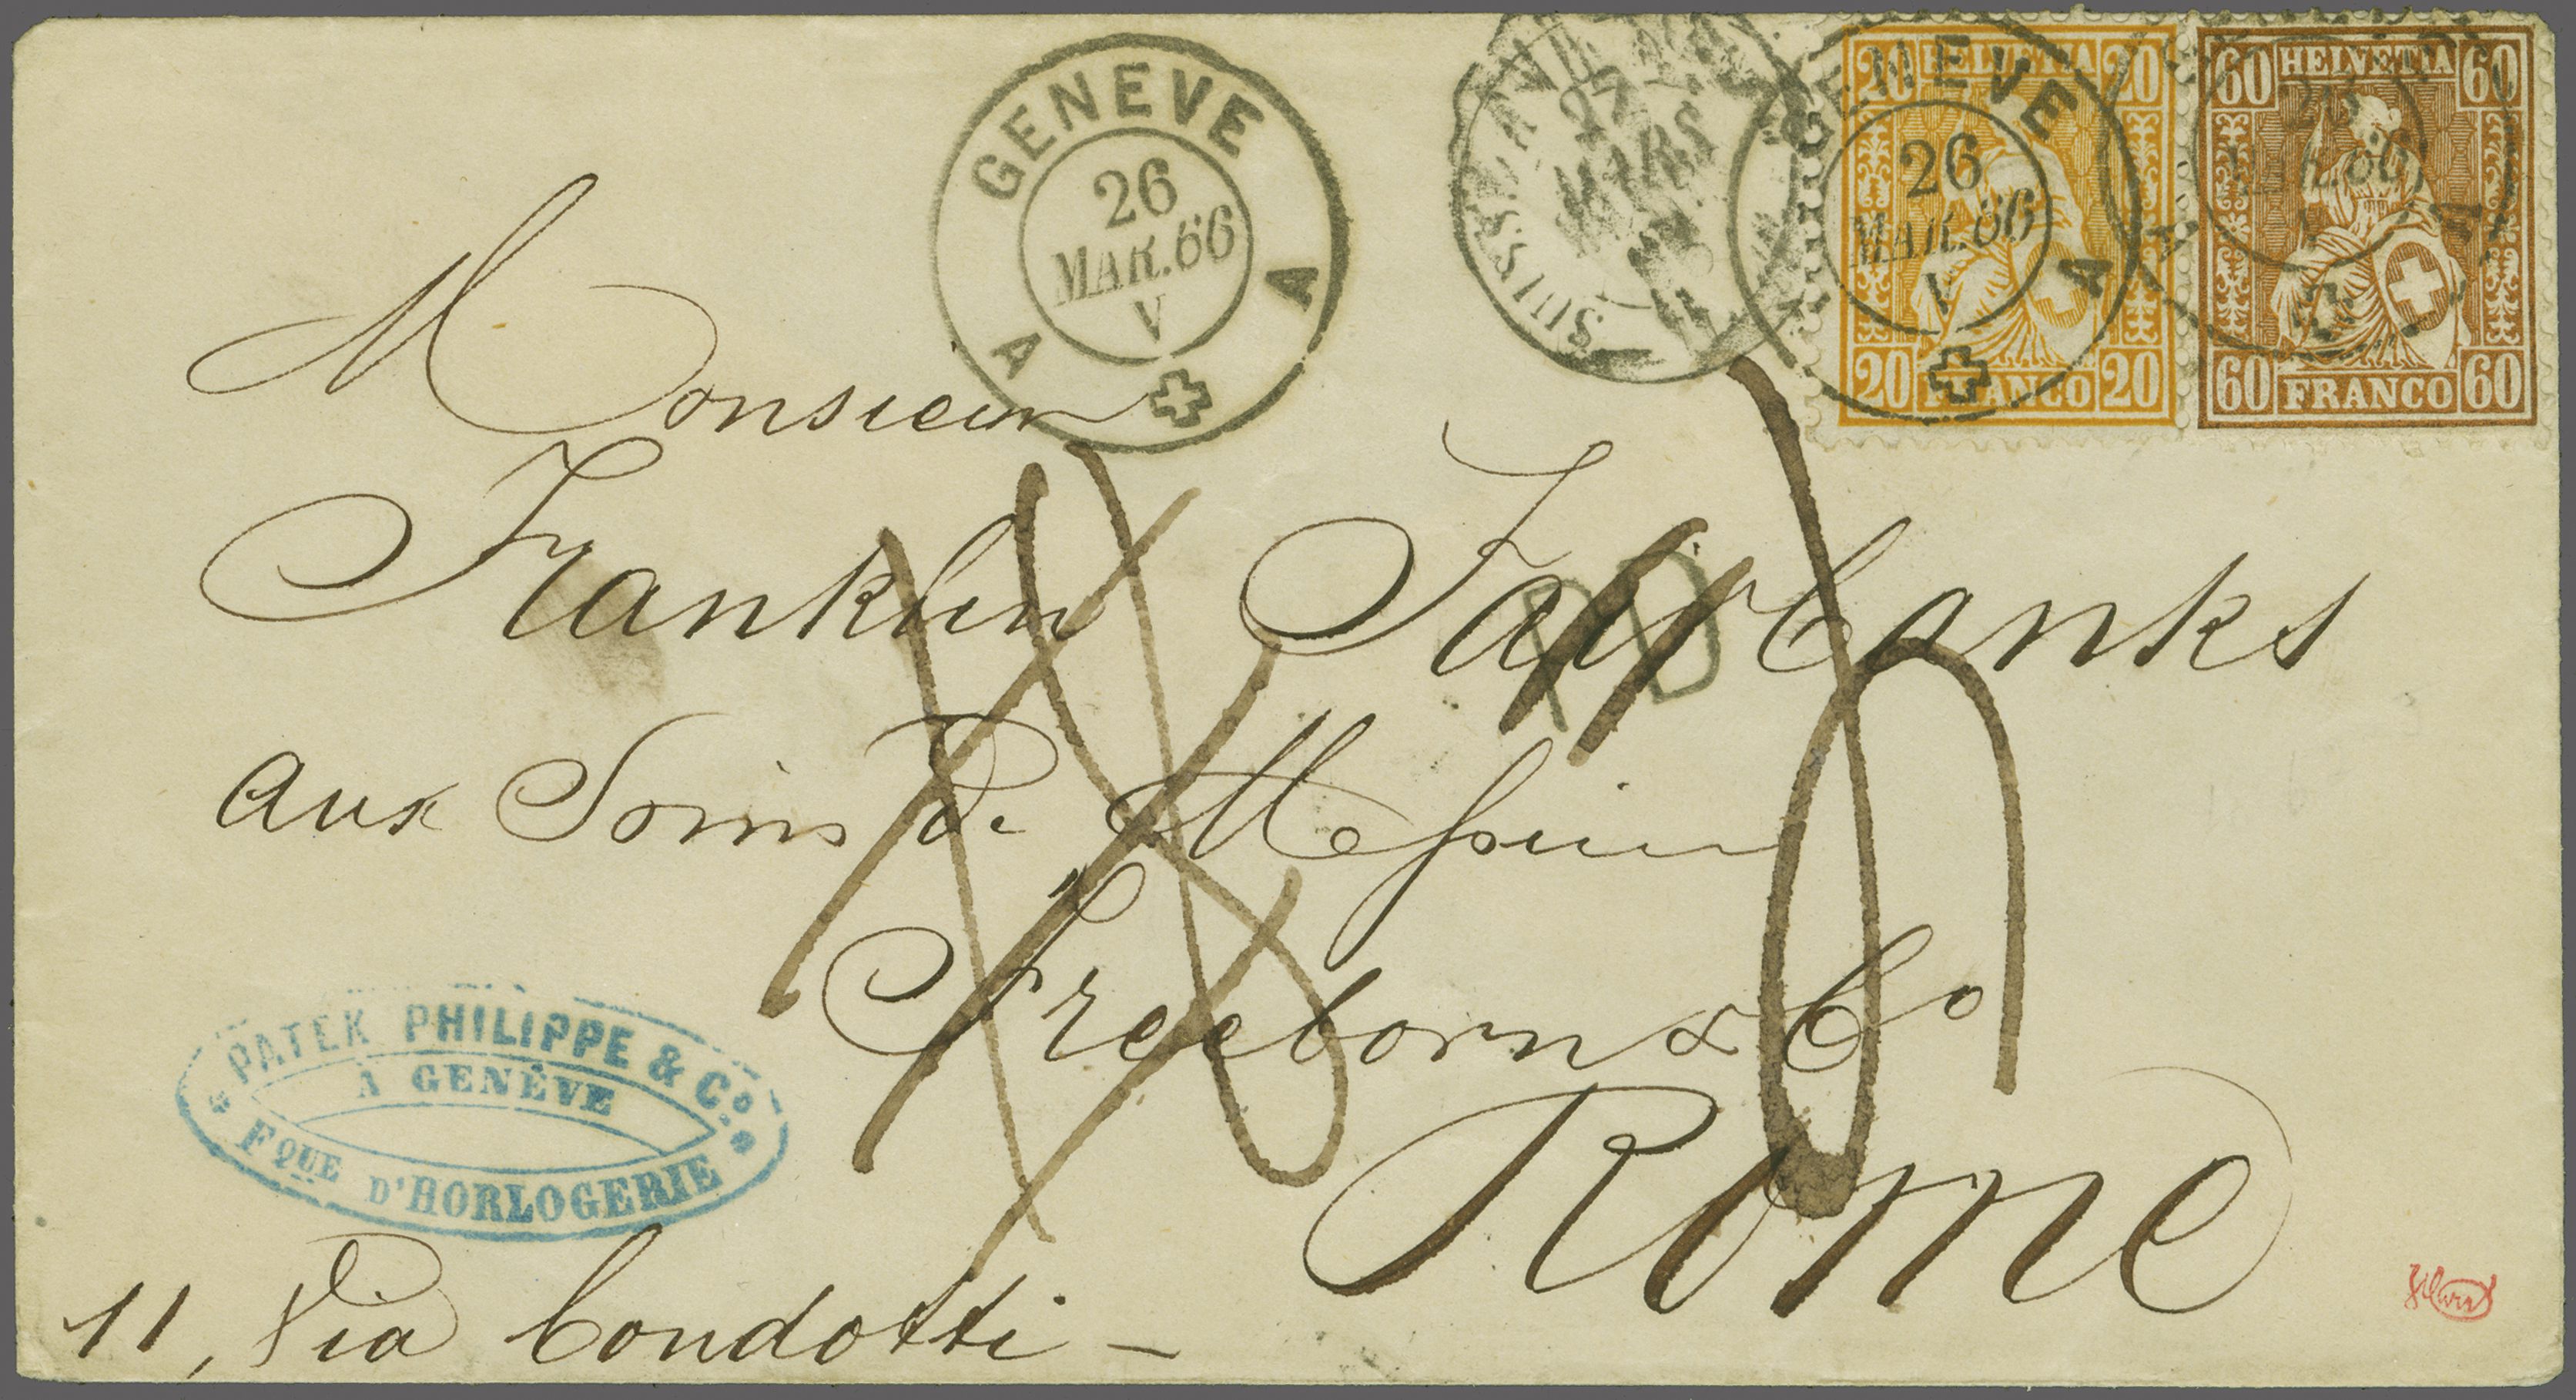 GENEVE
26
MAR.66
V
A A
27
MARS
SUISS.
GENEVE
26
MAR.66
V
A
20 HELVETIA 20
20 FRANCO 20
26
MAR.66
A A
60 HELVETIA 60
60 FRANCO 60
Monsieur
Franklin Fairbanks
PD
aux Soins de Messieurs
Freeborn & Co
Rome
PATEK PHILIPPE & Co.
À GENÈVE
FQUE D'HORLOGERIE
11, Via Condotti –